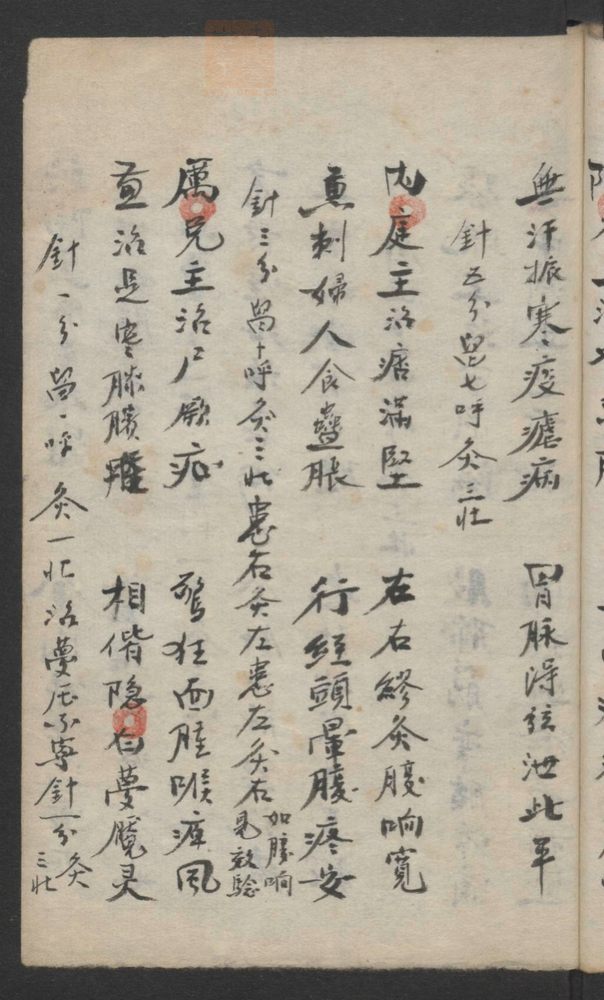 無汗振寒瘦瘧病　胃脉得弦泄此平
針五分畄七呼灸三壮
内庭主治痞滿堅　右右繆灸腹响寬
兼刺婦人食蠱脹　行經頭暈腹疼安
針三分畄十呼灸三壮患右灸左患左灸右如腹响見效驗
厲兌主治尸厥症　驚狂面腫喉痺風
兼治足寒膝臏腫　相偕隐白夢魘灵
針一分畄一呼灸一壮治夢不寧針一分灸三壮